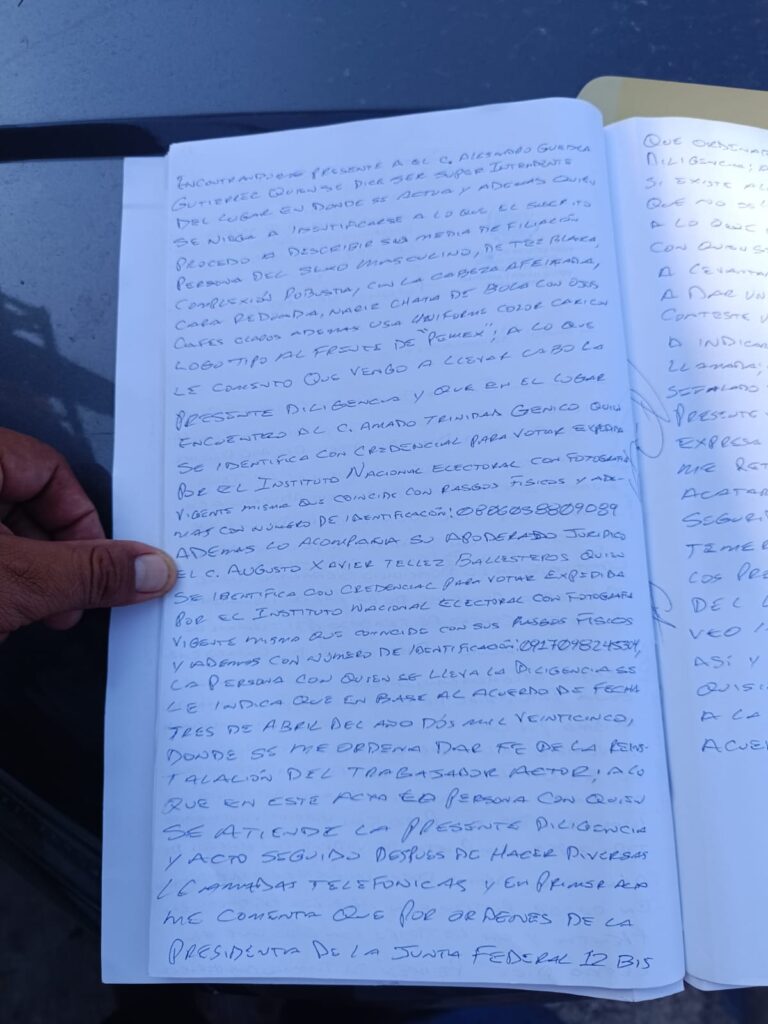 ENCONTRANDOSE PRESENTE A EL C. ALEJANDRO GUERRA
GUTIERREZ QUIEN SE DICE SER SUPER INTENDENTE
DEL LUGAR EN DONDE SE ACTUA Y ADEMAS QUIEN
SE NIEGA A IDENTIFICARSE A LO QUE EL SUSCRITO
PROCEDO A DESCRIBIR SU MEDIA DE FILIACIÓN
PERSONA DEL SEXO MASCULINO, DE TEZ BLANCA,
COMPLEXIÓN ROBUSTA, CON LA CABEZA AFEITADA,
CARA REDONDA, NARIZ CHATA DE BOLA CON OJOS
CAFES CLAROS ADEMAS USA UNIFORME COLOR CAQUI CON
LOGO TIPO AL FRENTE DE "PEMEX"; A LO QUE
LE COMENTO QUE VENGO A LLEVAR CABO LA
PRESENTE DILIGENCIA Y QUE EN EL LUGAR
ENCUENTRO AL C. AMADO TRINIDAD GENICO QUIEN
SE IDENTIFICA CON CREDENCIAL PARA VOTAR EXPEDIDA
POR EL INSTITUTO NACIONAL ELECTORAL CON FOTOGRAFIA
VIGENTE MISMA QUE COINCIDE CON RASGOS FISICOS Y ADE-
MAS CON NÚMERO DE IDENTIFICACIÓN: 0806058809089
ADEMAS LO ACOMPAÑA SU APODERADO JURIDICO
EL C. AUGUSTO XAVIER TELLEZ BALLESTEROS QUIEN
SE IDENTIFICA CON CREDENCIAL PARA VOTAR EXPEDIDA
POR EL INSTITUTO NACIONAL ELECTORAL CON FOTOGRAFIA
VIGENTE MISMA QUE COINCIDE CON SUS RASGOS FISICOS
Y ADEMAS CON NÚMERO DE IDENTIFICACIÓN:
LA PERSONA CON QUIEN SE LLEVA LA DILIGENCIA SE
LE INDICA QUE EN BASE AL ACUERDO DE FECHA
TRES DE ABRIL DEL AÑO DOS MIL VEINTICINCO,
DONDE SE ME ORDENA DAR FE DE LA REINS-
TALACIÓN DEL TRABAJADOR ACTOR; A LO
QUE EN ESTE ACTO PERSONA CON QUIEN
SE ATIENDE LA PRESENTE DILIGENCIA
Y ACTO SEGUIDO DESPUES DE HACER DIVERSAS
LLAMADAS TELEFONICAS Y EN PRIMER ACTO
ME COMENTA QUE POR ORDENES DE LA
PRESIDENTA DE LA JUNTA FEDERAL 12 BIS
QUE ORDENA
DILIGENCIA;
SI EXISTE
QUE NO
A LO QUE
CON QUIEN
A LEVANTA
A DAR UN
CONTESTE
A INDICA
LLAMADA;
SEÑALADO
PRESENTE
EXPRESA
ME RET
ACATAR
SEGURI
TEMER
LOS PRE
DEL
VEO
ASI Y
QUISI
A LA
ACUER